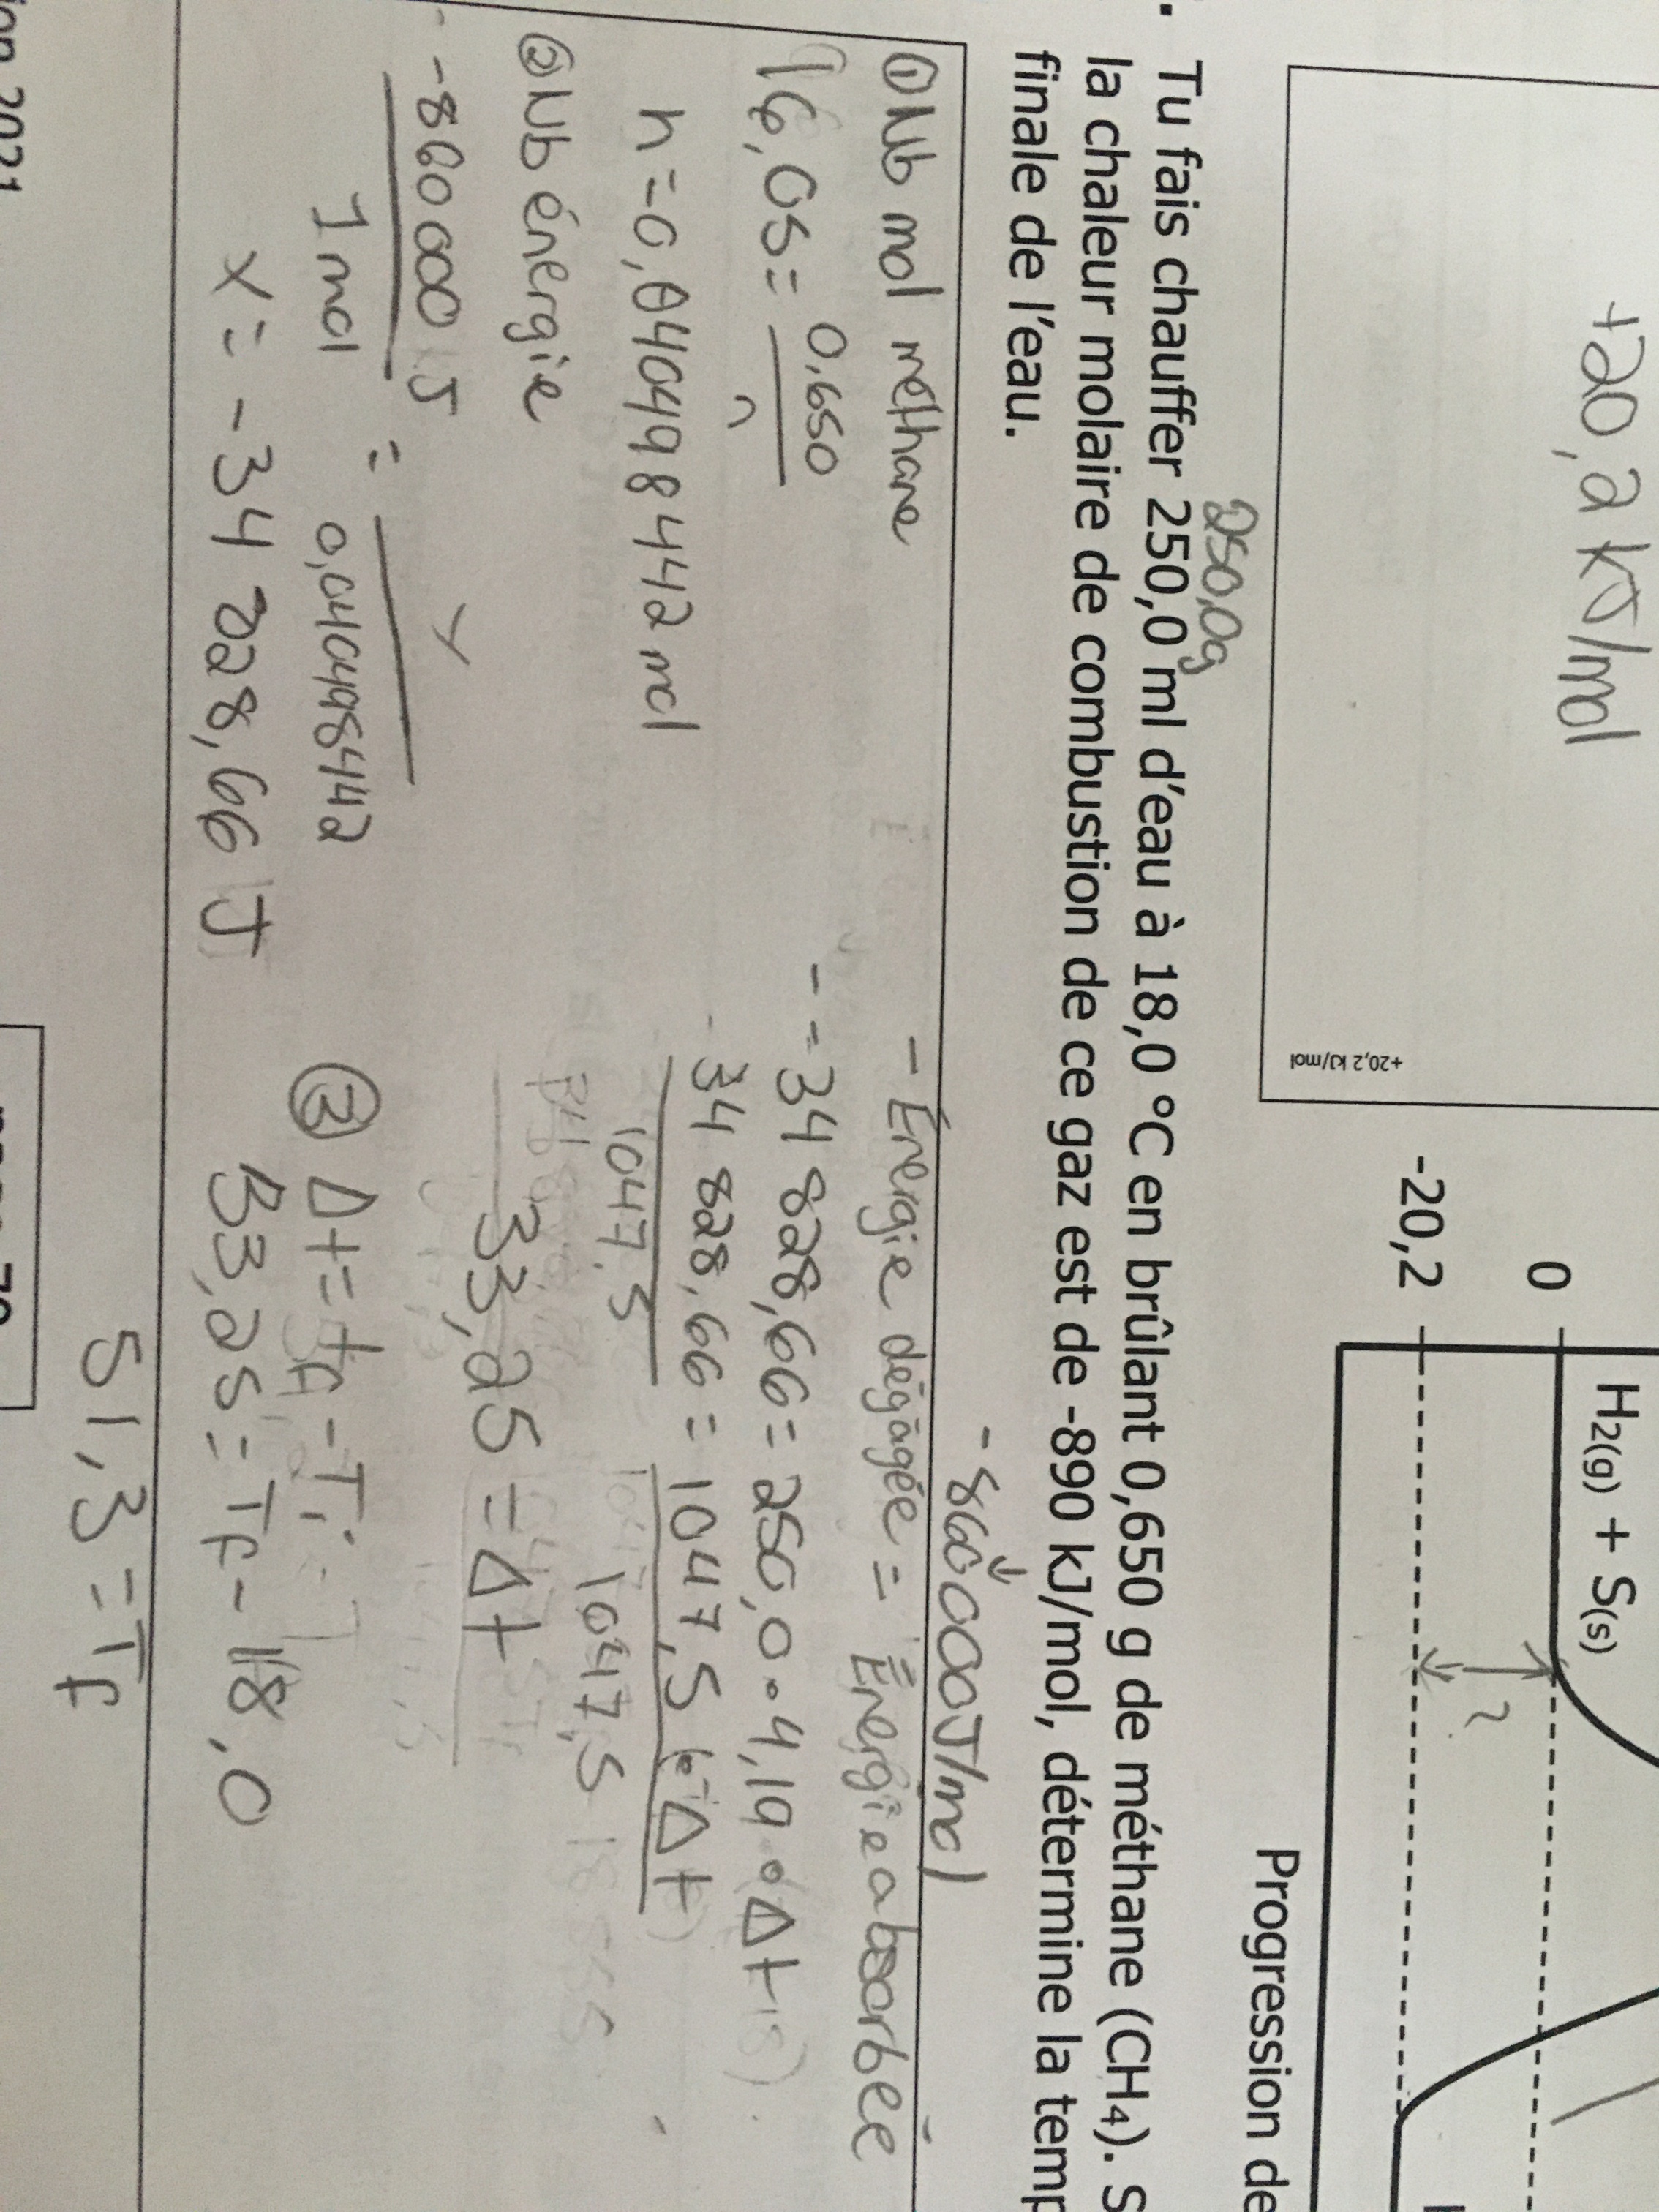 +20,2 kJ/mol
+20,2 kJ/mol
0
-20,2
H₂(g) + S(s)
?
Progression de
250,0g
. Tu fais chauffer 250,0 ml d'eau à 18,0 °C en brûlant 0,650 g de méthane (CH₄). S
la chaleur molaire de combustion de ce gaz est de -890 kJ/mol, détermine la temp
finale de l'eau.
-860000J/mol
① Nb mol méthane
16,05 = 0,650
n
n = 0,040498442 mol
② Nb énergie
-860000 J = x
1 mol 0,040498442
x = -34 828,66 J
- Énergie dégagée = Énergie absorbée
- -34 828,66 = 250,0 • 4,19 • Δt
34 828,66 = 1047,5 • Δt
1047,5 1047,5
33,25 = Δt
③ Δt = tf - Ti
33,25 = Tf - 18,0
51,3 = Tf
2021